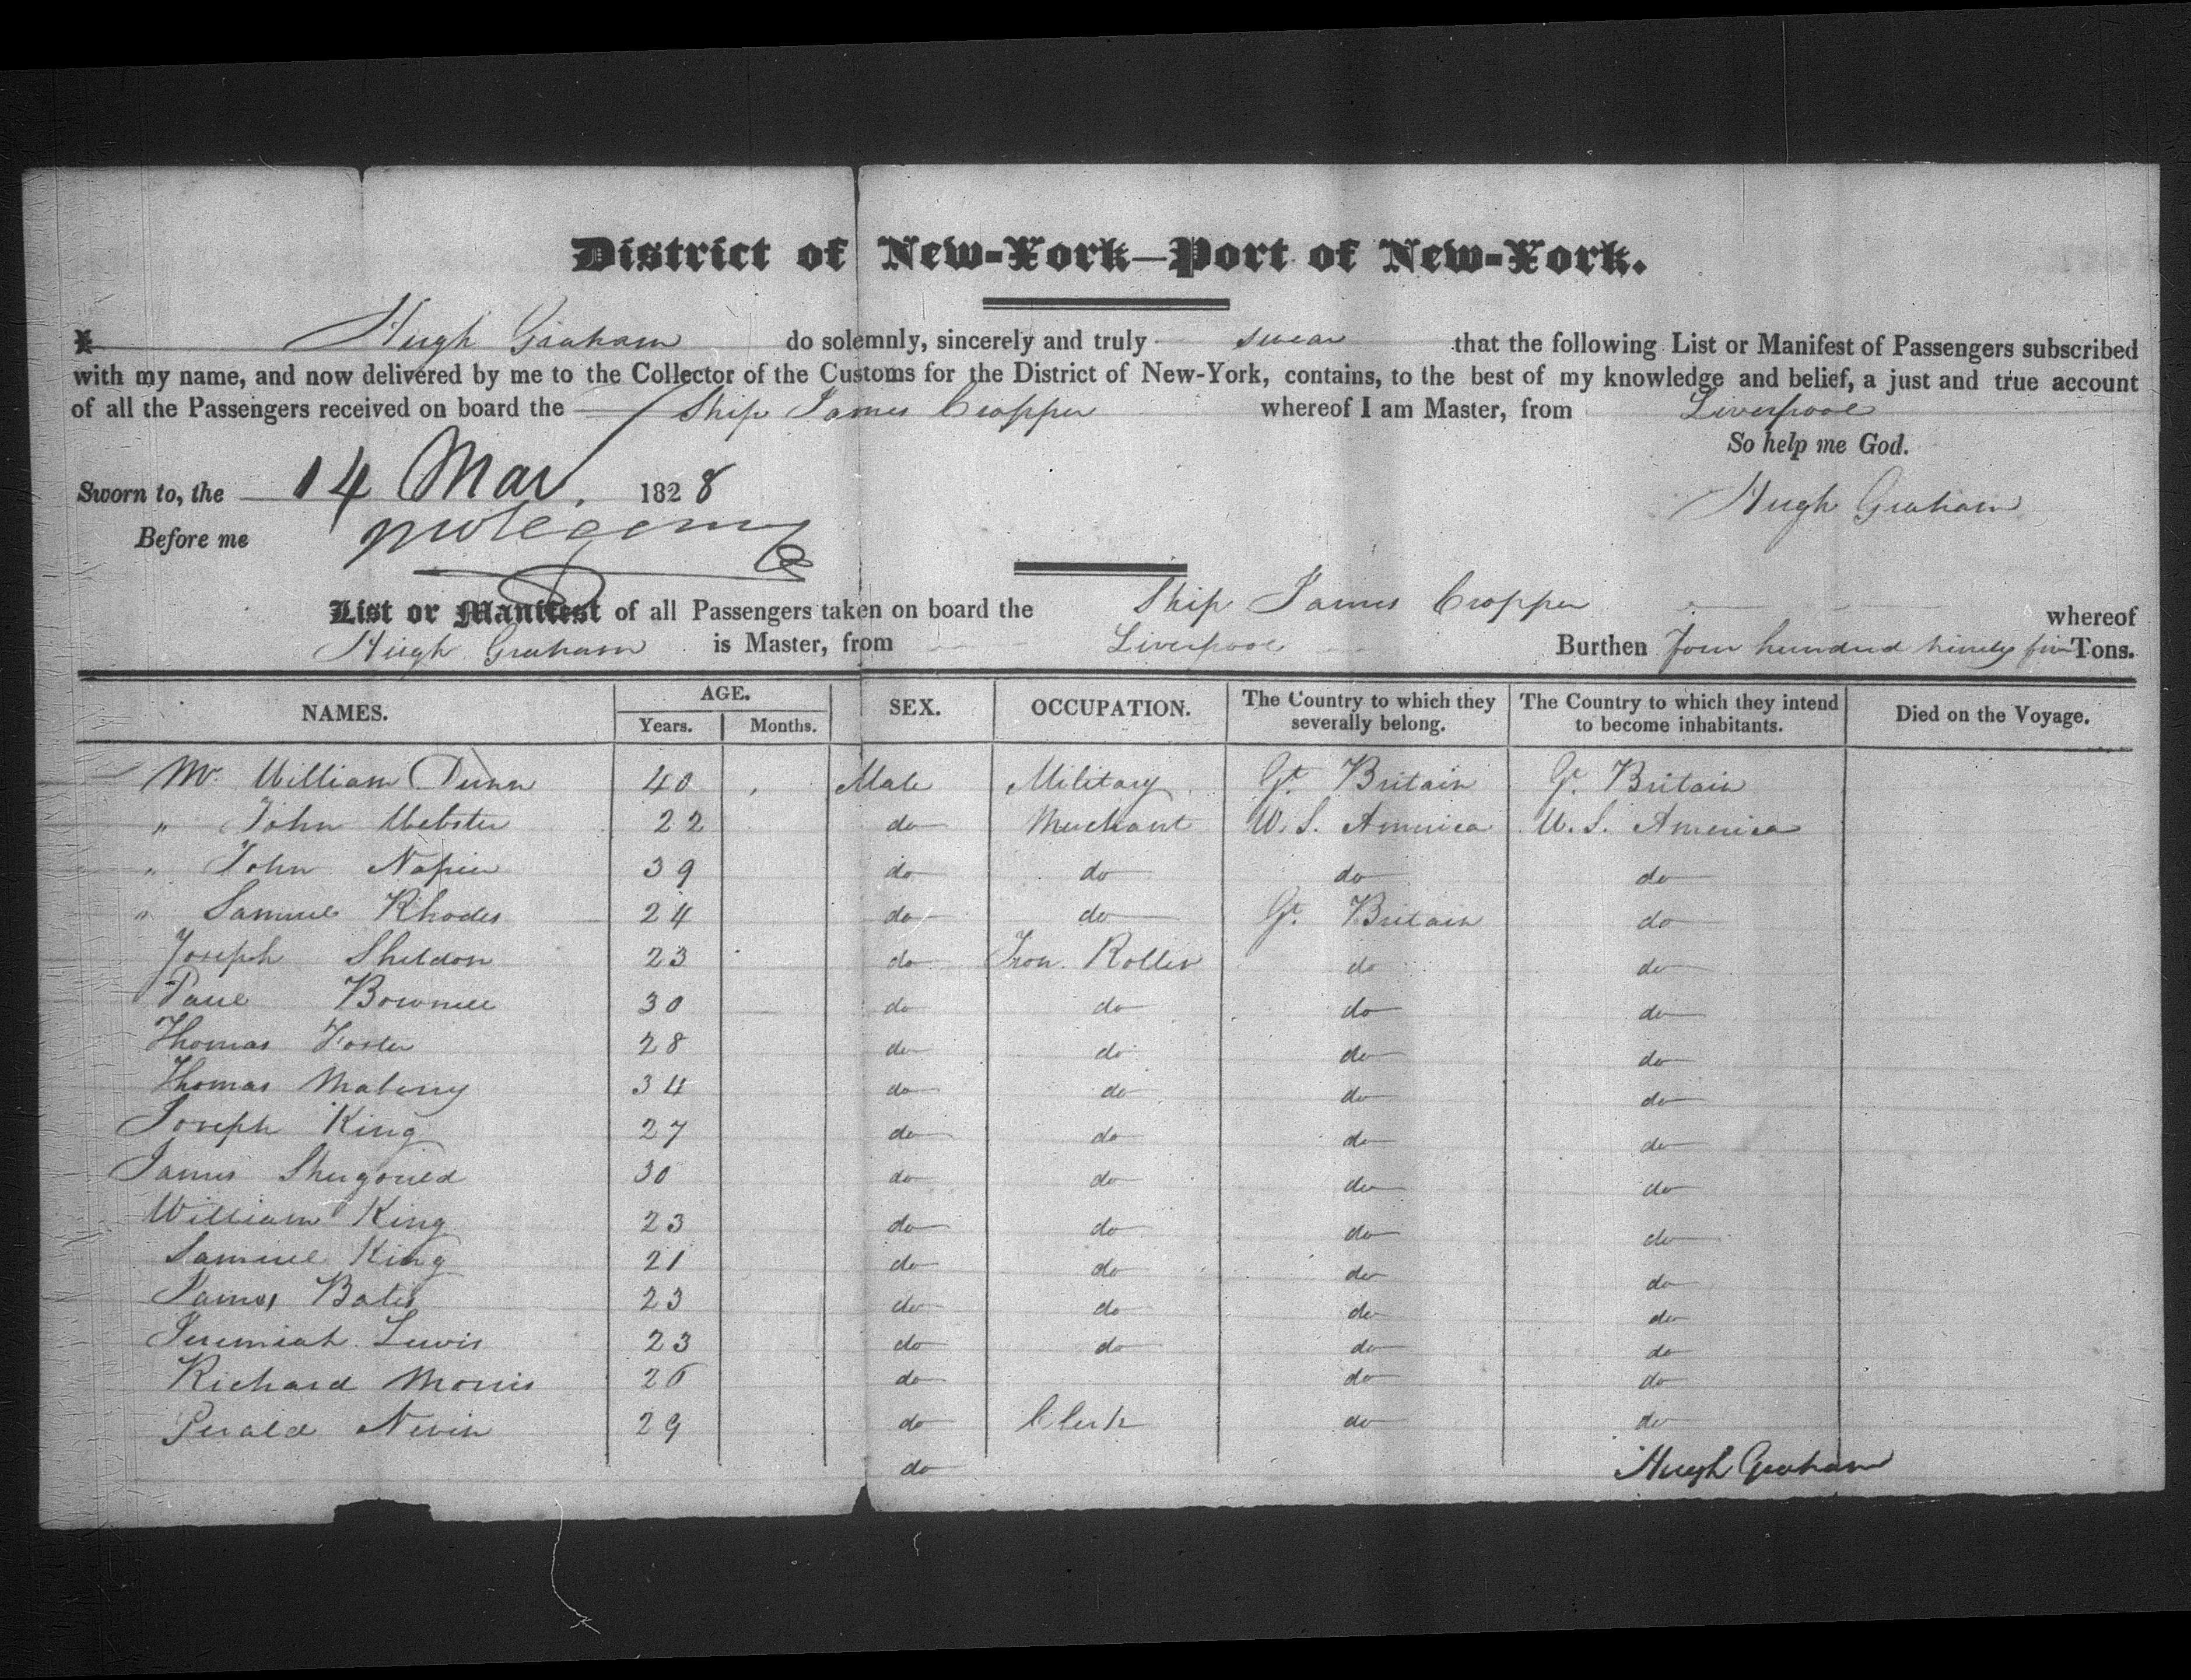 District of New-York—Port of New-York.
I Hugh Graham do solemnly, sincerely and truly swear that the following List or Manifest of Passengers subscribed
with my name, and now delivered by me to the Collector of the Customs for the District of New-York, contains, to the best of my knowledge and belief, a just and true account
of all the Passengers received on board the Ship James Cropper whereof I am Master, from Liverpool
So help me God.
Sworn to, the 14 Mar. 1828 Hugh Graham
Before me
List or Manifest of all Passengers taken on board the Ship James Cropper whereof
Hugh Graham is Master, from Liverpool Burthen Four hundred ninety five Tons.
NAMES. AGE. Years. Months. SEX. OCCUPATION. The Country to which they severally belong. The Country to which they intend to become inhabitants. Died on the Voyage.
Mr. William Dunn 40 Male Military Gt. Britain Gt. Britain
" John Webster 22 do Merchant U.S. America U.S. America
" John Napier 39 do do do do
" Samuel Rhodes 24 do do Gt. Britain do
Joseph Sheldon 23 do Iron Roller do do
Paul 30 do do do do
Thomas Foster 28 do do do do
Thomas 34 do do do do
Joseph King 27 do do do do
James 30 do do do do
William King 23 do do do do
Samuel King 21 do do do do
James Bates 23 do do do do
Jeremiah Lewis 23 do do do do
Richard Morris 26 do do do
Nevin 29 do Clerk do do
do Hugh Graham